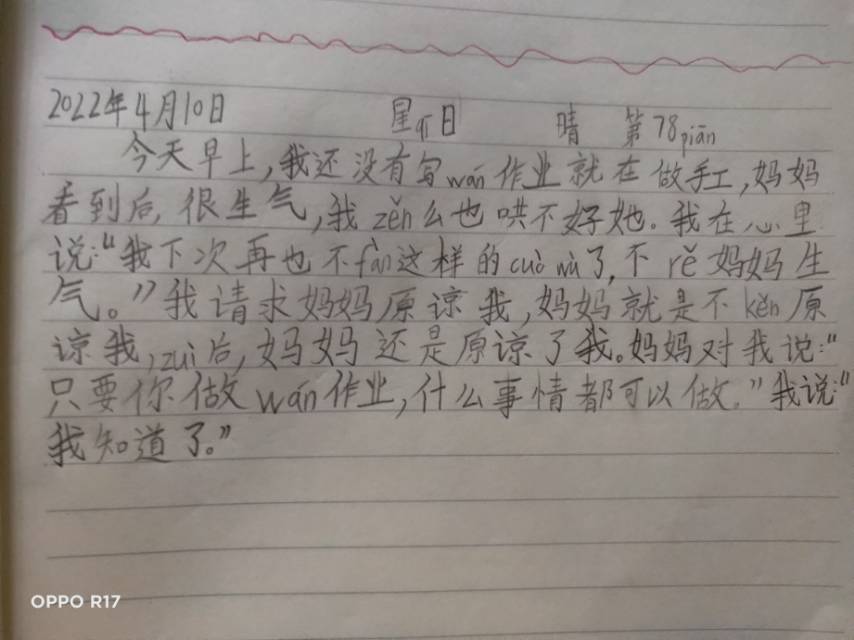 2022年4月10日 星qī日 晴 第78piān
今天早上,我还没有写wán作业就在做手工,妈妈
看到后,很生气,我zěn么也哄不好她.我在心里
说:"我下次再也不fàn这样的cuò wù了,不rě妈妈生
气。"我请求妈妈原谅我,妈妈就是不kěn原
谅我,zuì后,妈妈还是原谅了我。妈妈对我说:"
只要你做wán作业,什么事情都可以做."我说:"
我知道了。"
OPPO R17